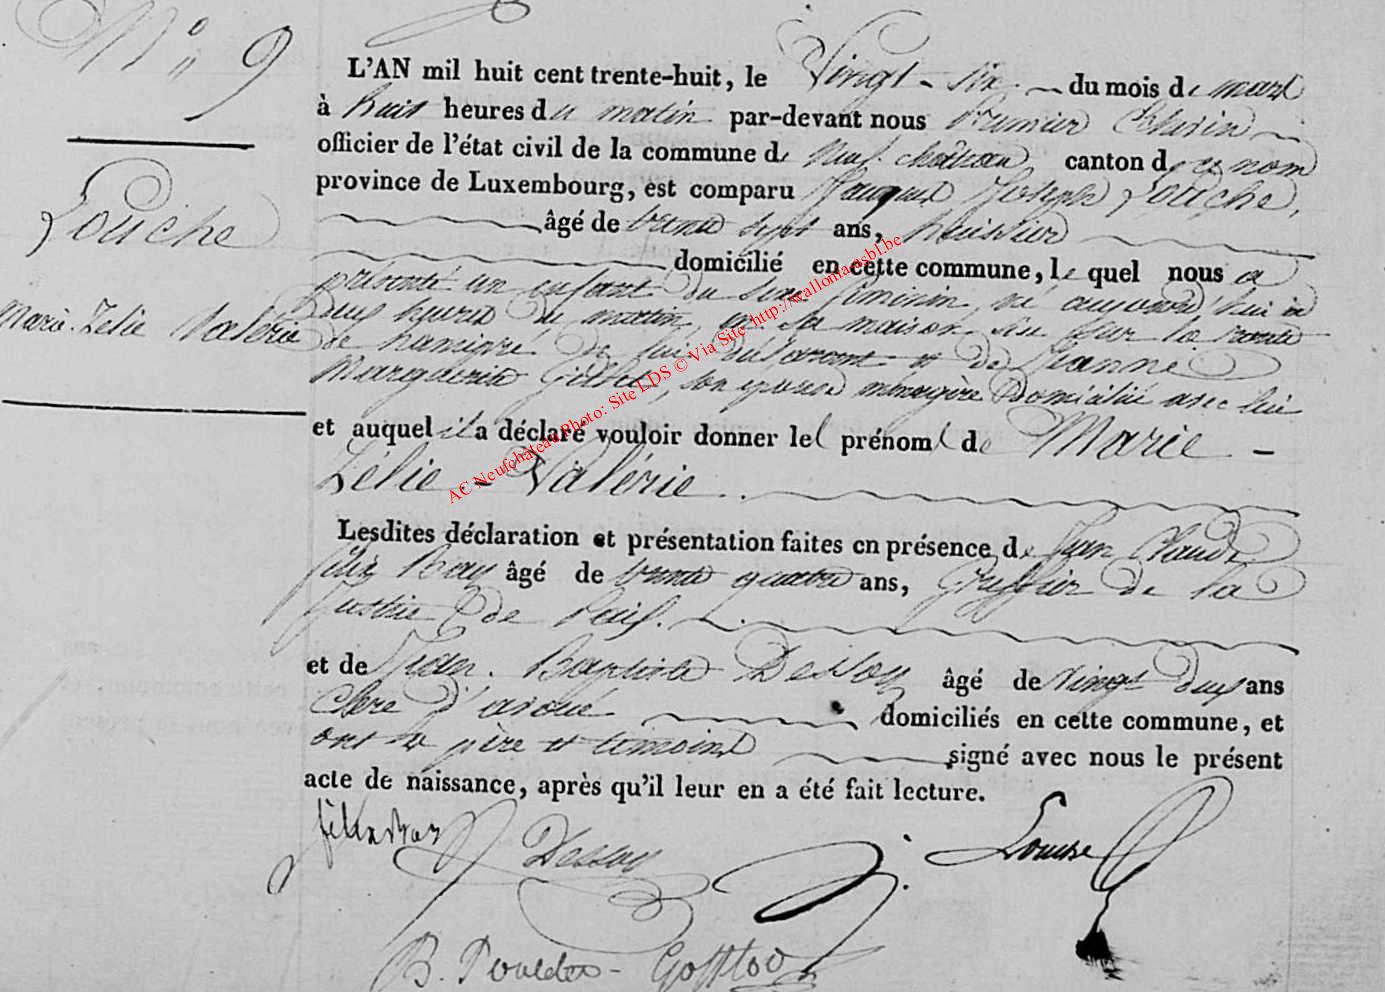 N° 9
L'AN mil huit cent trente-huit, le Vingt-six du mois de mars
à huit heures du matin par-devant nous
officier de l'état civil de la commune de Neufchâteau canton de ce nom
province de Luxembourg, est comparu Jacques Joseph Louche,
âgé de trente sept ans, huissier
domicilié en cette commune, lequel nous a
présenté un enfant du sexe féminin né aujourd'hui à
deux heures du matin, en sa maison sise sur la route
de de lui déclarant et de Jeanne
Marguerite son épouse ménagère domiciliée avec lui
et auquel il a déclaré vouloir donner le prénom de Marie-
Zélie-Valérie.
Lesdites déclaration et présentation faites en présence de Jean Claude
Félix Bay âgé de trente quatre ans, Greffier de la
Justice de Paix.
et de Jean Baptiste Dessoy âgé de vingt deux ans
Clerc d'avoué domiciliés en cette commune, et
ont les père et témoins signé avec nous le présent
acte de naissance, après qu'il leur en a été fait lecture.
Louche
Marie Zélie Valérie
Dessoy
Louche
AC Neufchâteau Photo: Site LDS © Via Site http://wallonia.asbl.be